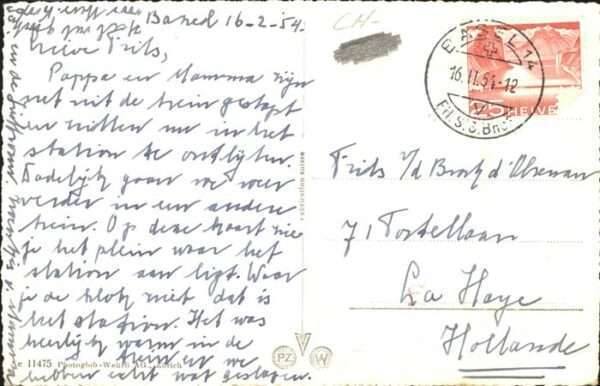 Basel 16-2-54.
Lieve Frits,
Pappa en Mamma zijn
net uit de trein gestapt
en zitten nu in het
station te ontbijten.
Dadelijk gaan we weer
verder in een andere
trein. Op deze kaart zie
je het plein waar het
station aan ligt. Waar
je de klok ziet dat is
het station. Het was
heerlijk warm in de
trein en we
hebben echt wat geslapen.
CH-
BASEL 14
16.II.54-12
Fil. S.B.
25 HELVETIA
Frits v/d
71
La Haye
Hollande
11475 Photoglob-Wehrli AG., Zürich
PZ W